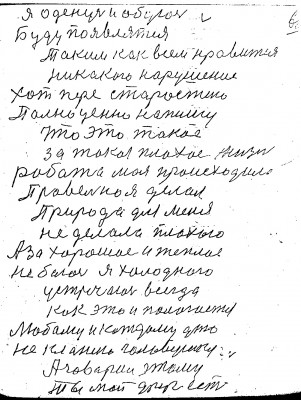 я оденун и обурон
Буду появлятия
Таким как всем нравития
никакого нарушение
Хот пере старостию
Полноценно напишу
Что это такое
За такая плохое жизн
робота моя происходила
Правельноя делал
Природа для меня
не делала плохого
А за хорошое и теплае
не богои я холодного
устречаюи всегда
как это и пологается
Любому и каждому дто
не кланею головушку
А говарии этому
ты мой друг ест